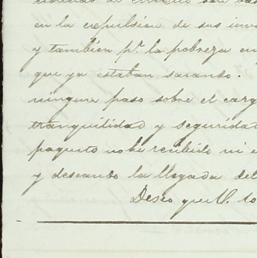 en la expulsion de sus inv
y tambien pr. la pobreza en
que ya estaban sacando.
ninguna paso sobre el carg
tranquilidad y seguridad
paquete no he recibido ni e
y deseando la llegada del
Deseo que U. lo